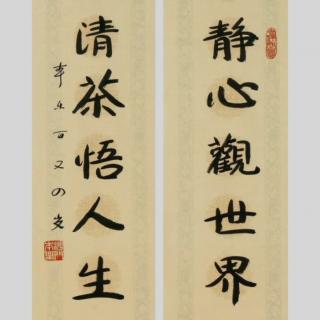 静心觀世界
清茶悟人生